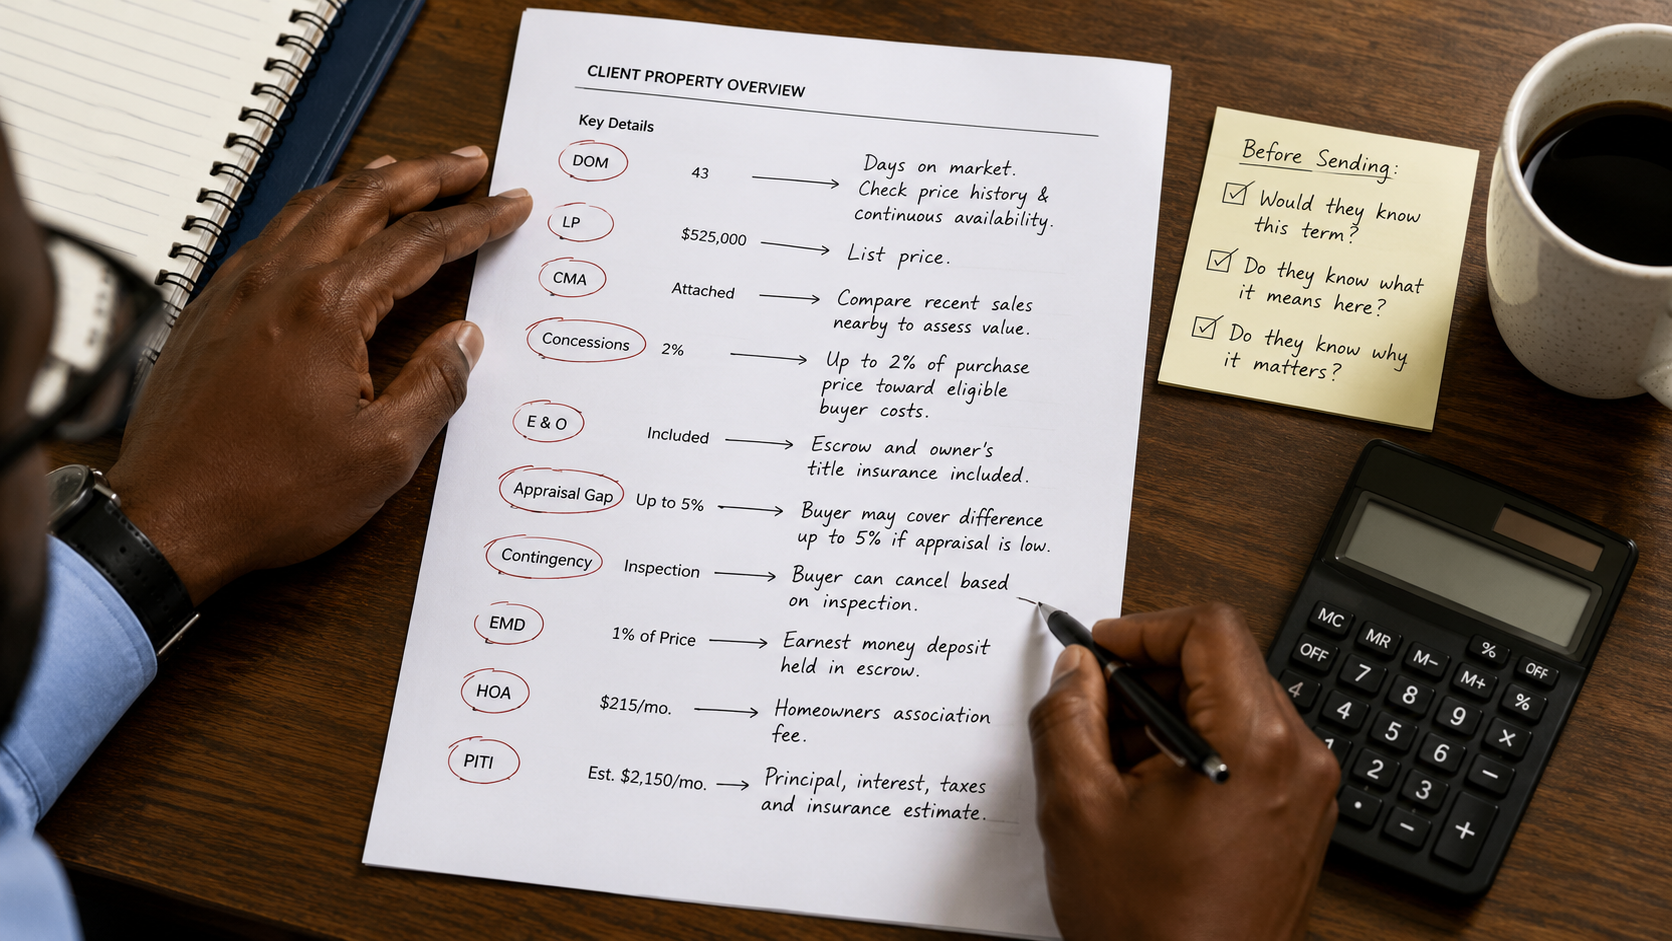 CLIENT PROPERTY OVERVIEW
Key Details
DOM 43 Days on market.
Check price history &
continuous availability.
LP $525,000 List price.
CMA Attached Compare recent sales
nearby to assess value.
Concessions 2% Up to 2% of purchase
price toward eligible
buyer costs.
E & O Included Escrow and owner's
title insurance included.
Appraisal Gap Up to 5% Buyer may cover difference
up to 5% if appraisal is low.
Contingency Inspection Buyer can cancel based
on inspection.
EMD 1% of Price Earnest money deposit
held in escrow.
HOA $215/mo. Homeowners association
fee.
PITI Est. $2,150/mo. Principal, interest, taxes
and insurance estimate.
Before Sending:
Would they know
this term?
Do they know what
it means here?
Do they know why
it matters?
MC MR M− % OFF
OFF 7 8 M+ %
4 4 5 9 ×
1 2 6 −
• 3 +
−